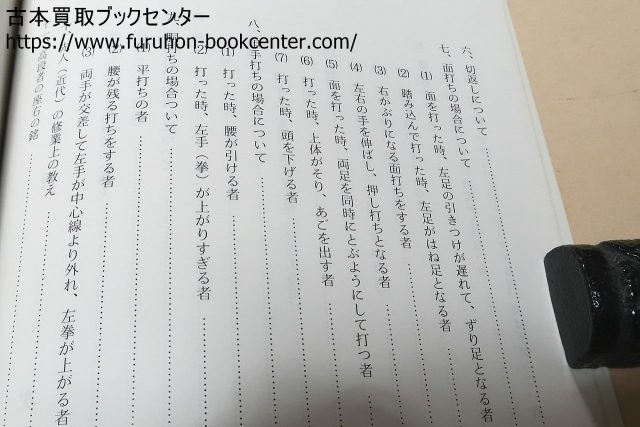 古本買取ブックセンター
https://www.furuhon-bookcenter.com/
六、切返しについて
七、面打ちの場合について
(1) 面を打った時、左足の引きつけが遅れて、ずり足となる者
(2) 踏み込んで打った時、左足がはね足となる者
(3) 右かぶりになる面打ちをする者
(4) 左右の手を伸ばし、押し打ちとなる者
(5) 面を打った時、両足を同時にとぶようにして打つ者
(6) 打った時、上体がそり、あごを出す者
(7) 打った時、頭を下げる者
八、小手打ちの場合について
(1) 打った時、腰が引ける者
(2) 打った時、左手(拳)が上がりすぎる者
胴打ちの場合ついて
(1) 平打ちの者
(2) 腰が残る打ちをする者
(3) 両手が交差して左手が中心線より外れ、左拳が上がる者
人(近代)の修業上の教え
高段者の座右の銘